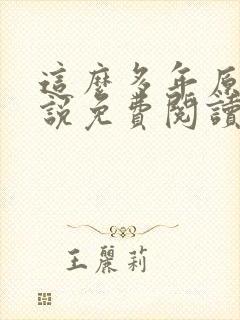 這麼多年原
說免費閱讀
王麗莉